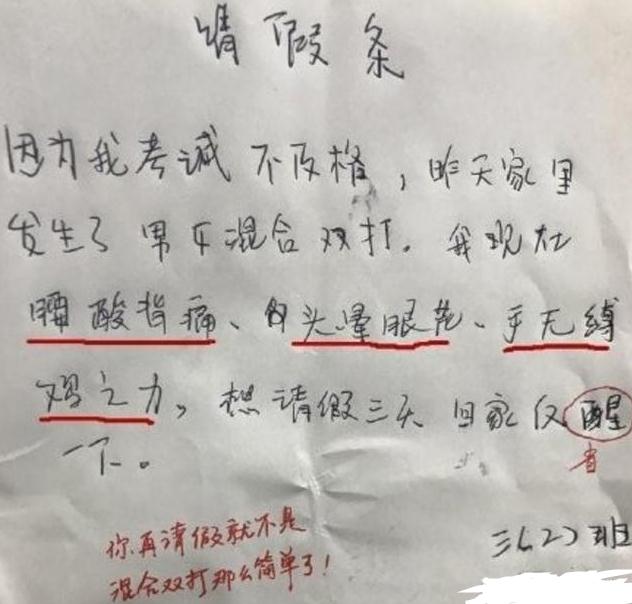 请假条
因为我考试不及格，昨天家里
发生了男女混合双打。我现在
腰酸背痛、头晕眼花、手无缚
鸡之力，想请假三天回家反醒
一下。
省
你再请假就不是
混合双打那么简单了！
三(2)班